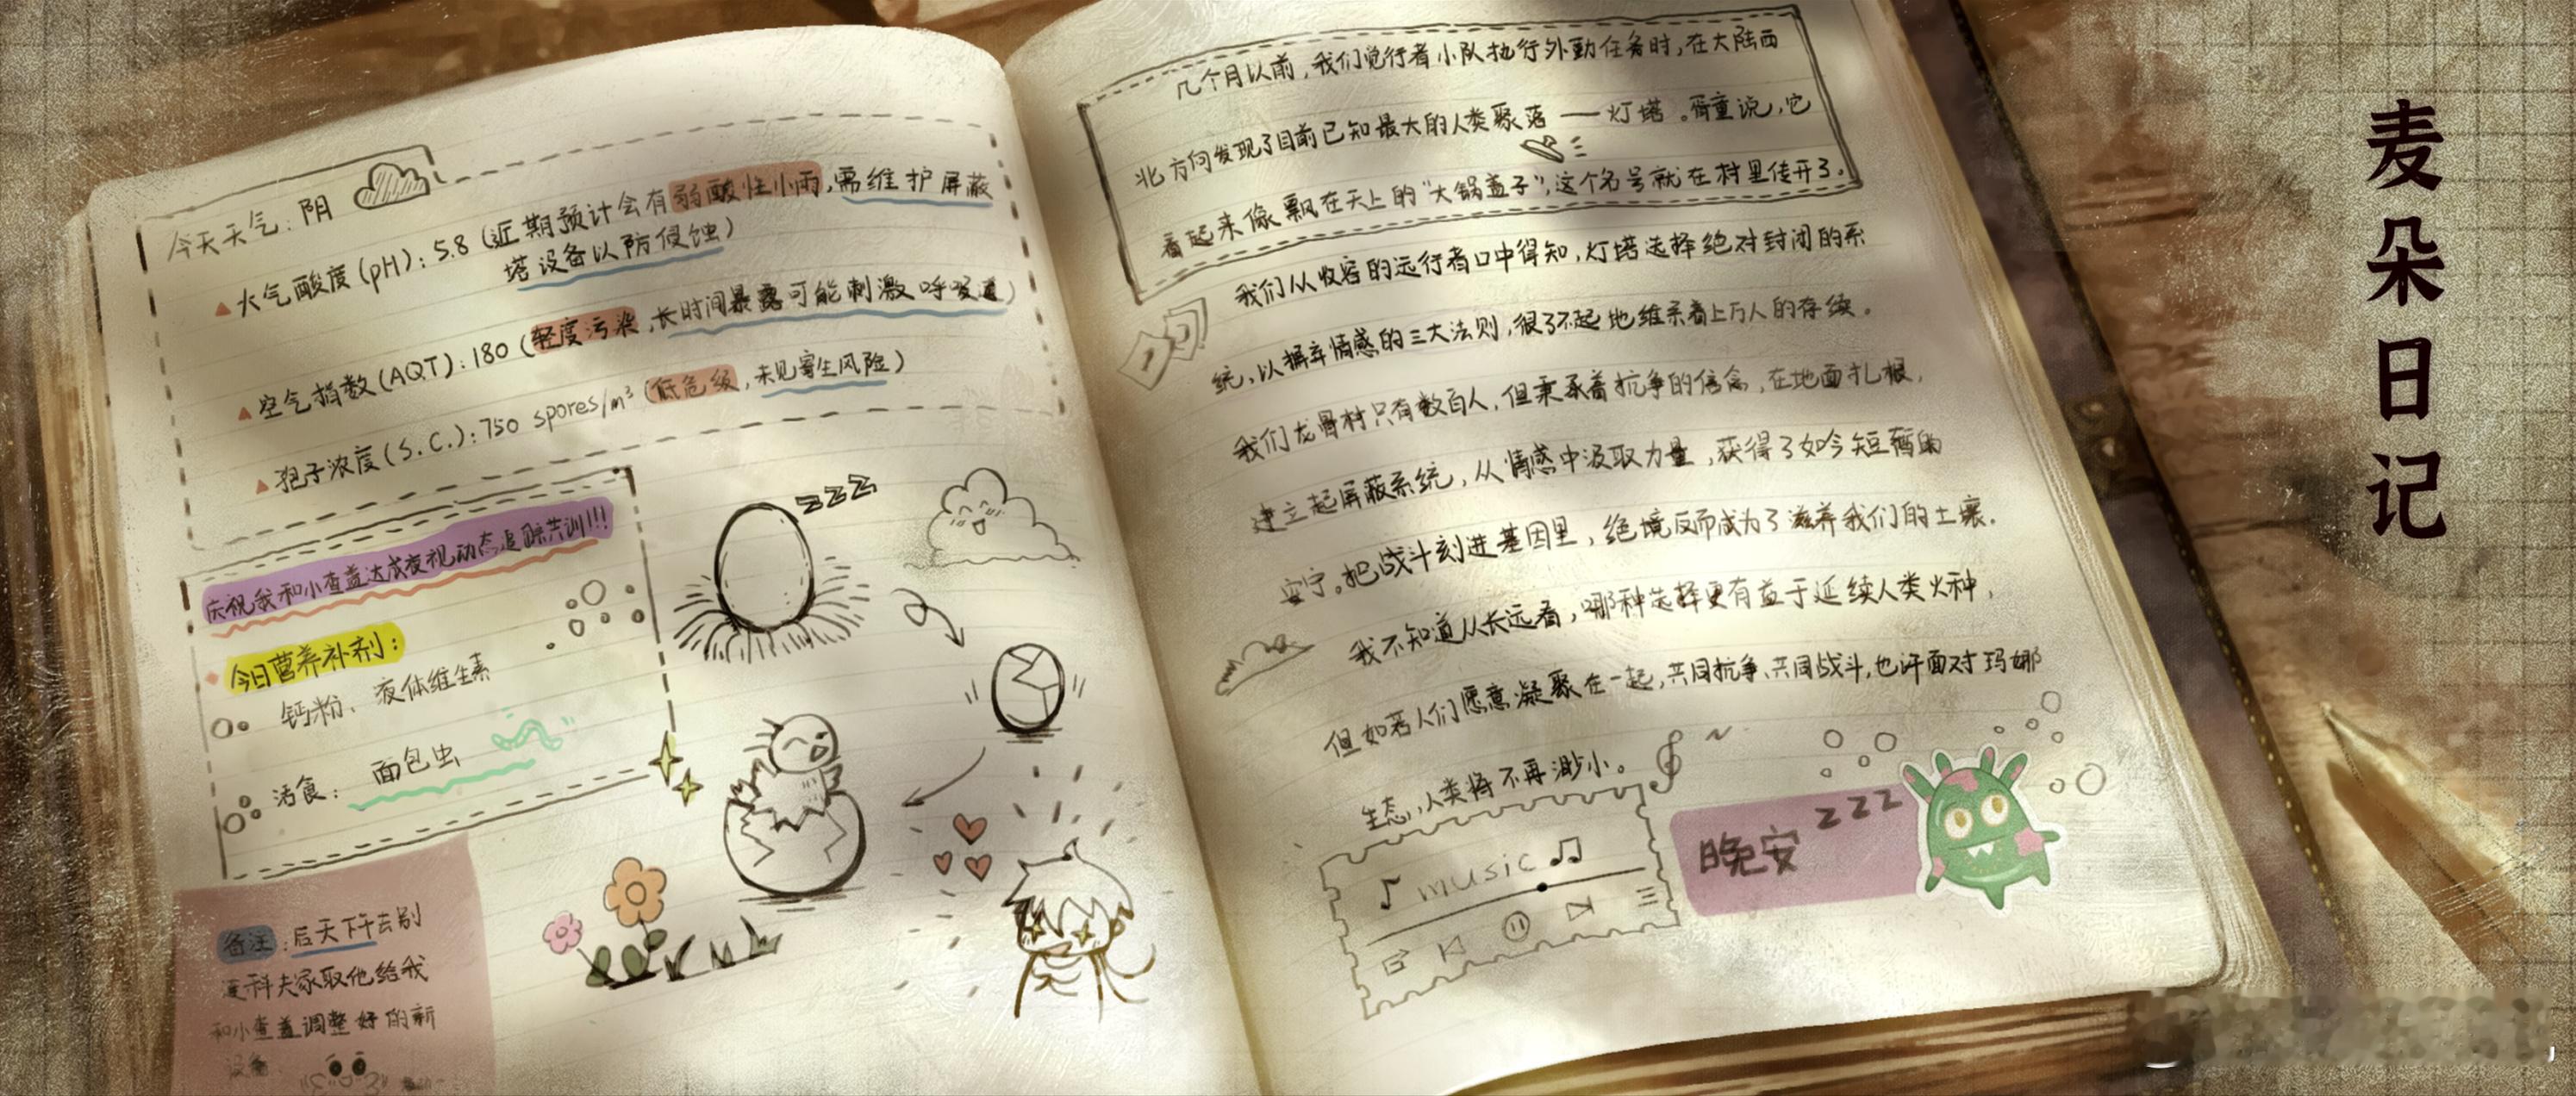 今天天气：阴
大气酸度(pH)：5.8（近期预计会有弱酸性小雨，需维护屏蔽
塔设备以防侵蚀）
空气指数(AQT)：180（轻度污染，长时间暴露可能刺激呼吸道）
孢子浓度(S.C.)：750 spores/m³（低危级，未见寄生风险）
庆祝我和小查盖达成夜视动态追踪共训!!!
今日营养补剂：
钙粉、液体维生素
活食： 面包虫
备注：后天下午去别
连科夫家取他给我
和小查盖调整好的新
设备
zzz
几个月以前，我们觉行者小队执行外勤任务时，在大陆西
北方向发现了目前已知最大的人类聚落——灯塔。胥童说，它
看起来像飘在天上的“大锅盖子”，这个名号就在村里传开了。
我们从收容的远行者口中得知，灯塔选择绝对封闭的系
统，以摒弃情感的三大法则，很了不起地维系着上万人的存续。
我们龙骨村只有数百人，但秉承着抗争的信念，在地面扎根，
建立起屏蔽系统，从情感中汲取力量，获得了如今短暂的
安宁。把战斗刻进基因里，绝境反而成为了滋养我们的土壤。
我不知道从长远看，哪种选择更有益于延续人类火种，
但如若人们愿意凝聚在一起，共同抗争、共同战斗，也许面对玛娜
生态，人类将不再渺小。
music
晚安 zzz
麦朵日记